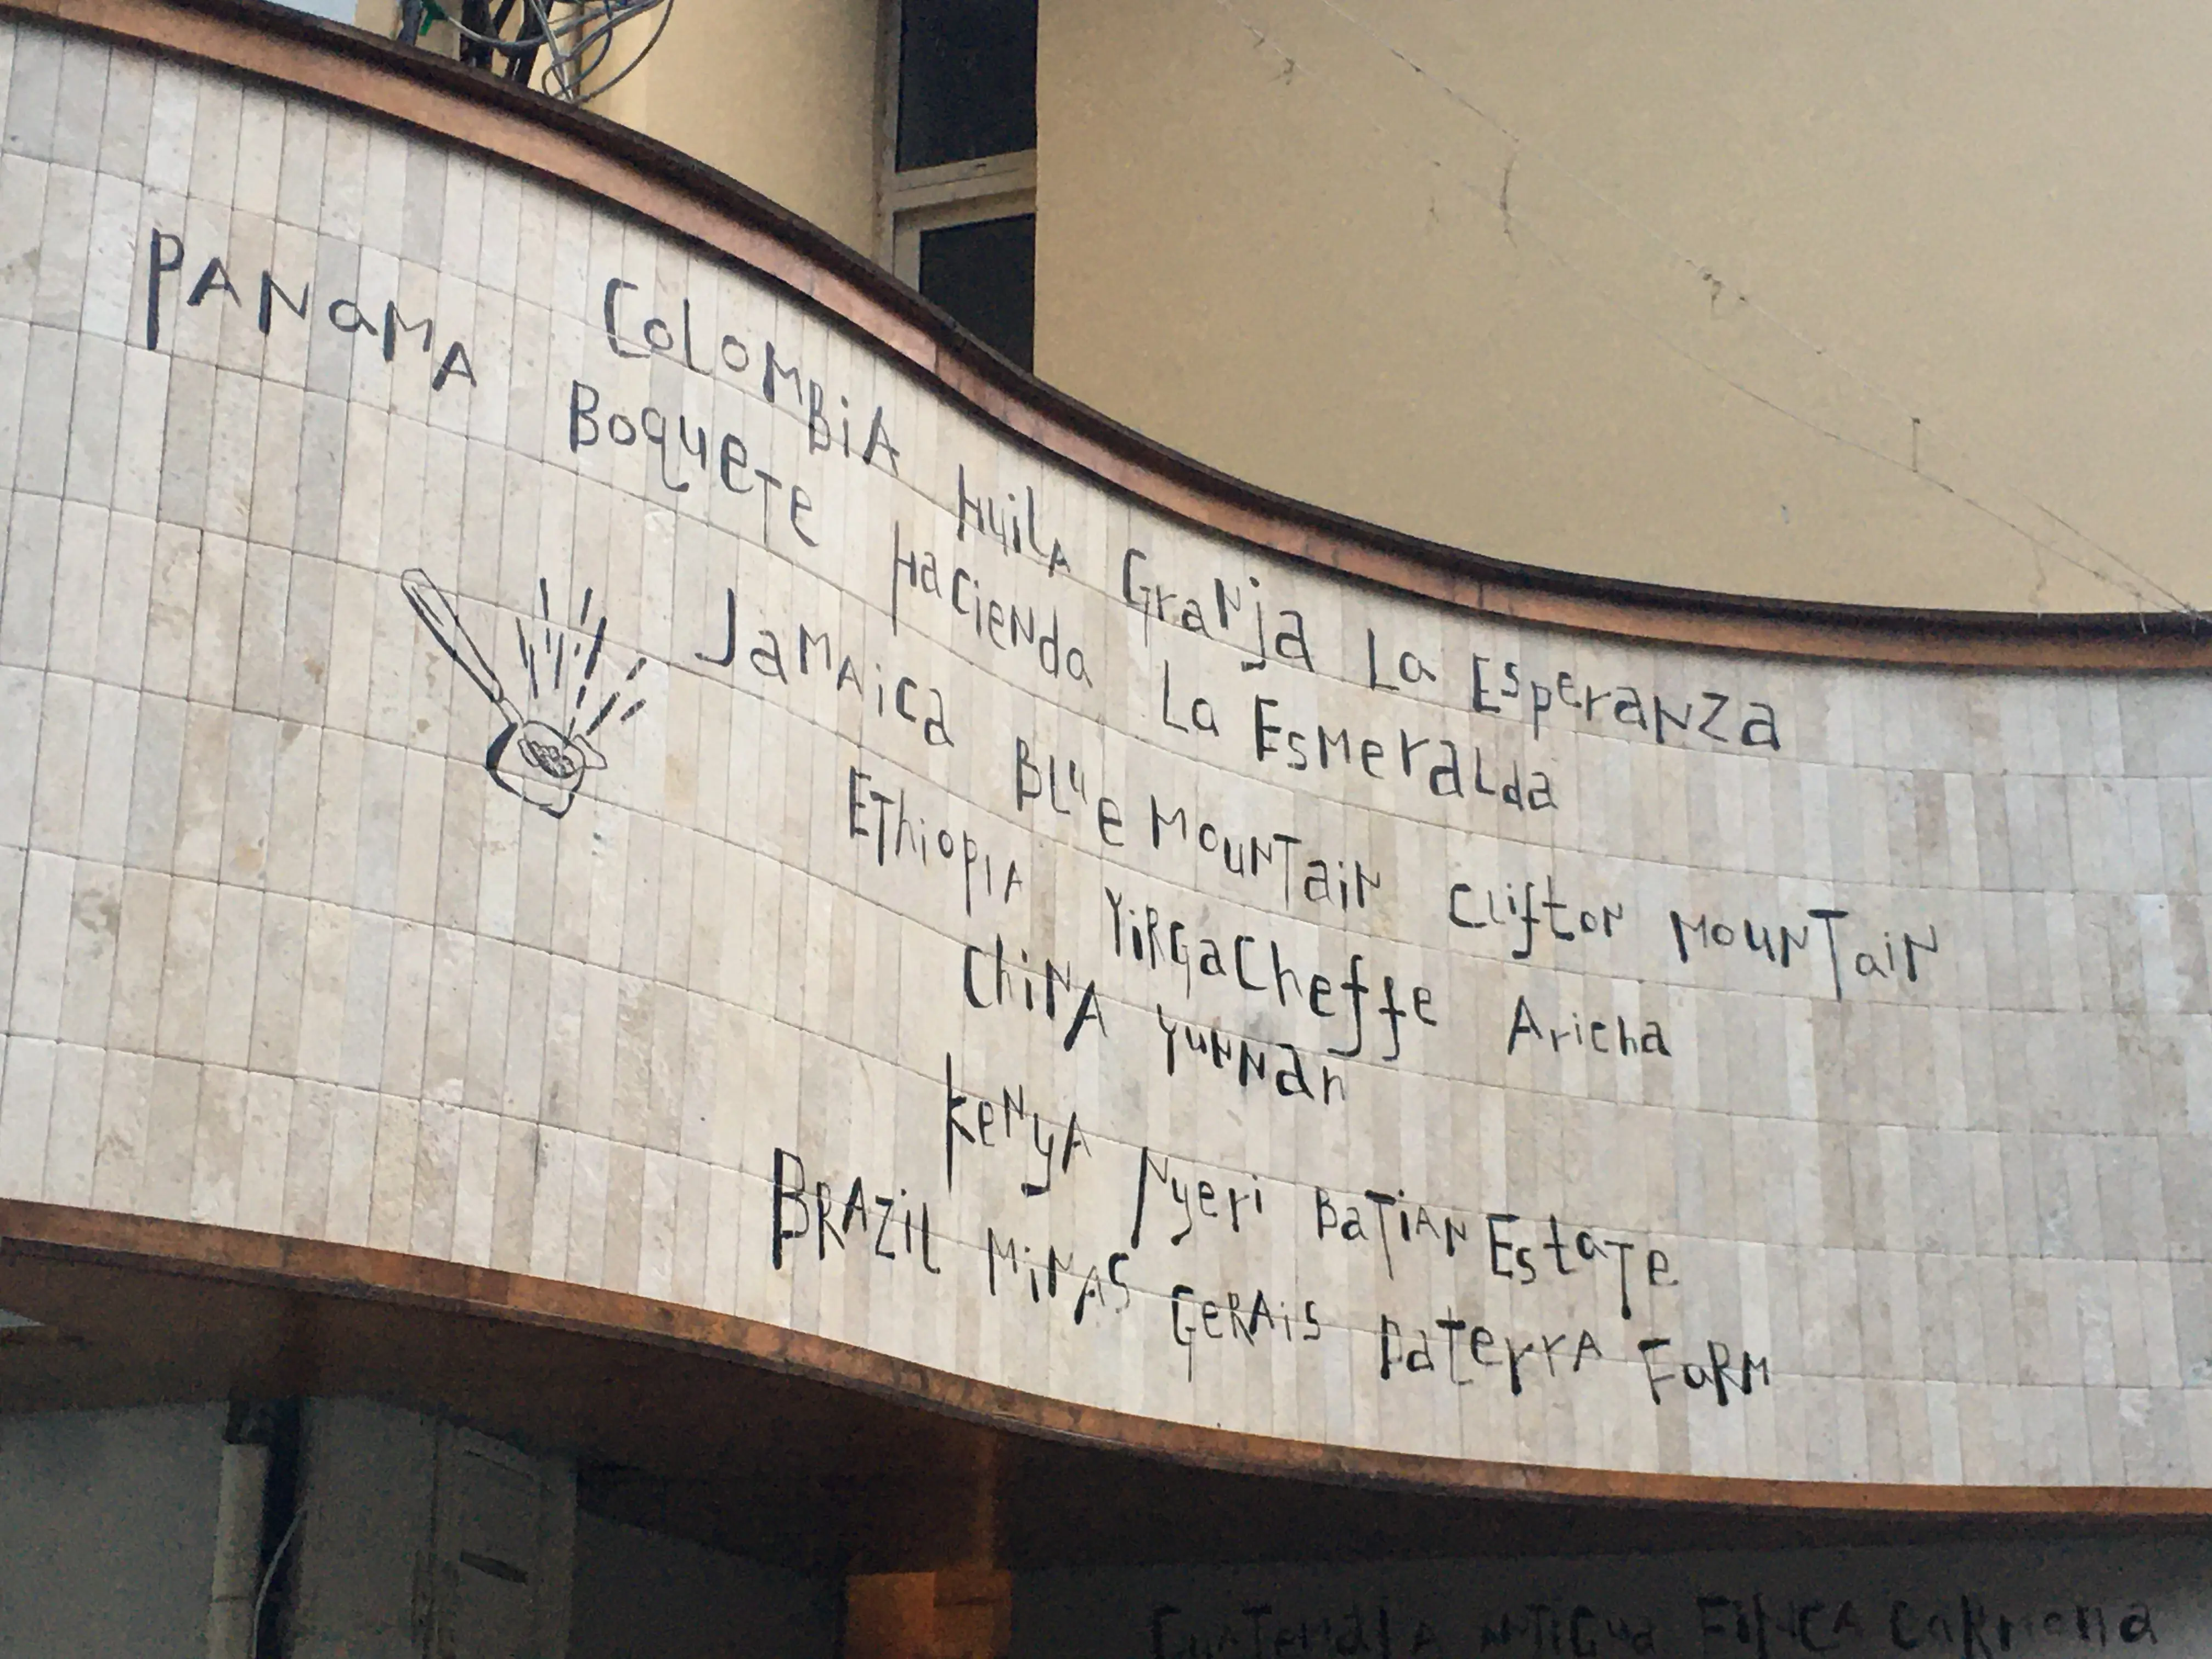 COLOMBIA Huila Granja La Esperanza
PANaMA Boquete Hacienda La Esmeralda
Jamaica Blue Mountain Clifton Mountain
Ethiopia Yirgacheffe Aricha
China Yunnan
Kenya Nyeri Batian Estate
Brazil Minas Gerais Daterra Farm
Guatemala Antigua Finca Carmona